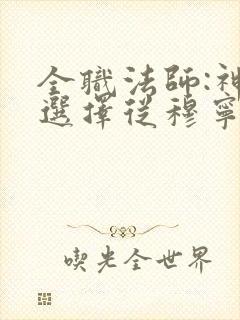 全職法師:神
選擇從穆寧
喫光全世界